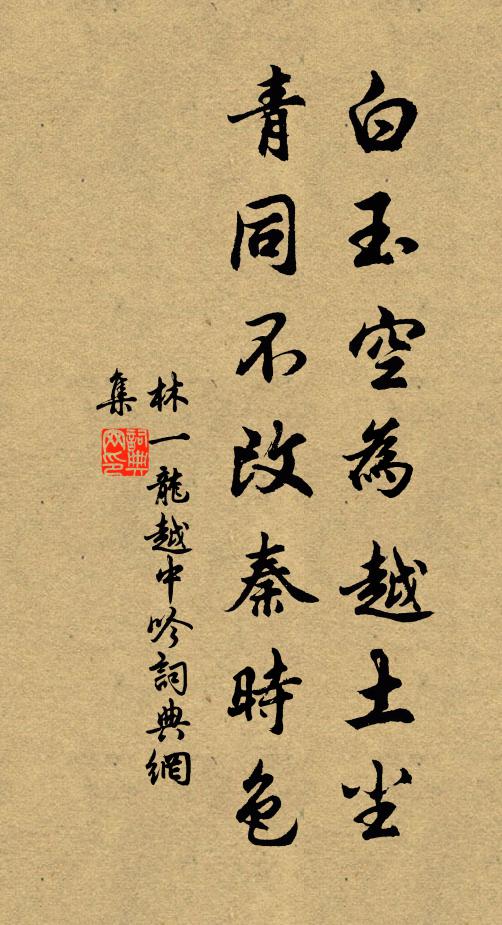 白玉空為越土尘
青同不改秦時色
林一龍越中吟詞典網
集
詞典网印